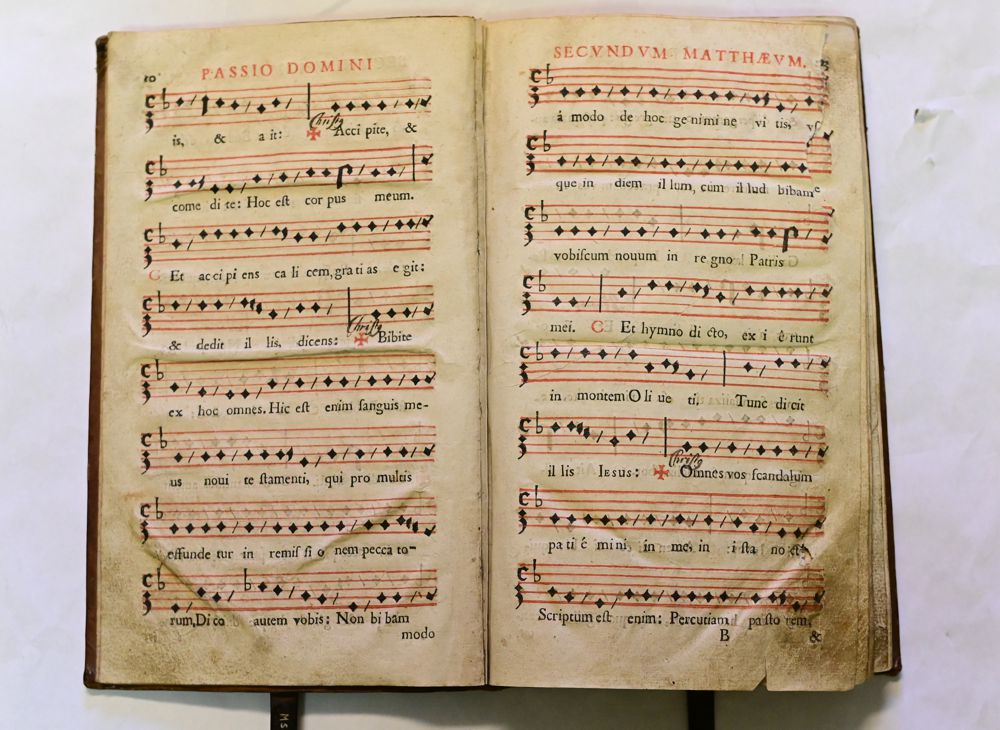 10
PASSIO DOMINI
is, & a it: Christo ✠ Acci pite, &
come di te: Hoc eſt cor pus meum.
C Et ac ci pi ens ca li cem, gra ti as e git:
& dedit il lis, dicens: Christo ✠ Bibite
ex hoc omnes. Hic eſt enim ſanguis me-
us noui te ſtamenti, qui pro multis
effunde tur in remiſ ſi o nem pecca to-
rum, Di co autem vobis: Non bi bam
modo
SECVNDVM MATTHÆVM.
á modo de hoc ge ni mi ne vi tis, vſ
que in diem il lum, cùm il lud bibam
vobiſcum nouum in re gno Patris
mei. C Et hymno di cto, ex i é runt
in montem O li ue ti. Tunc di cit
il lis IESUS: Christo ✠ Omnes vos ſcandalum
pa ti é mi ni, in me, in i ſta no
Scriptum eſt enim: Percutiam pa ſto rem,
B &
Ms